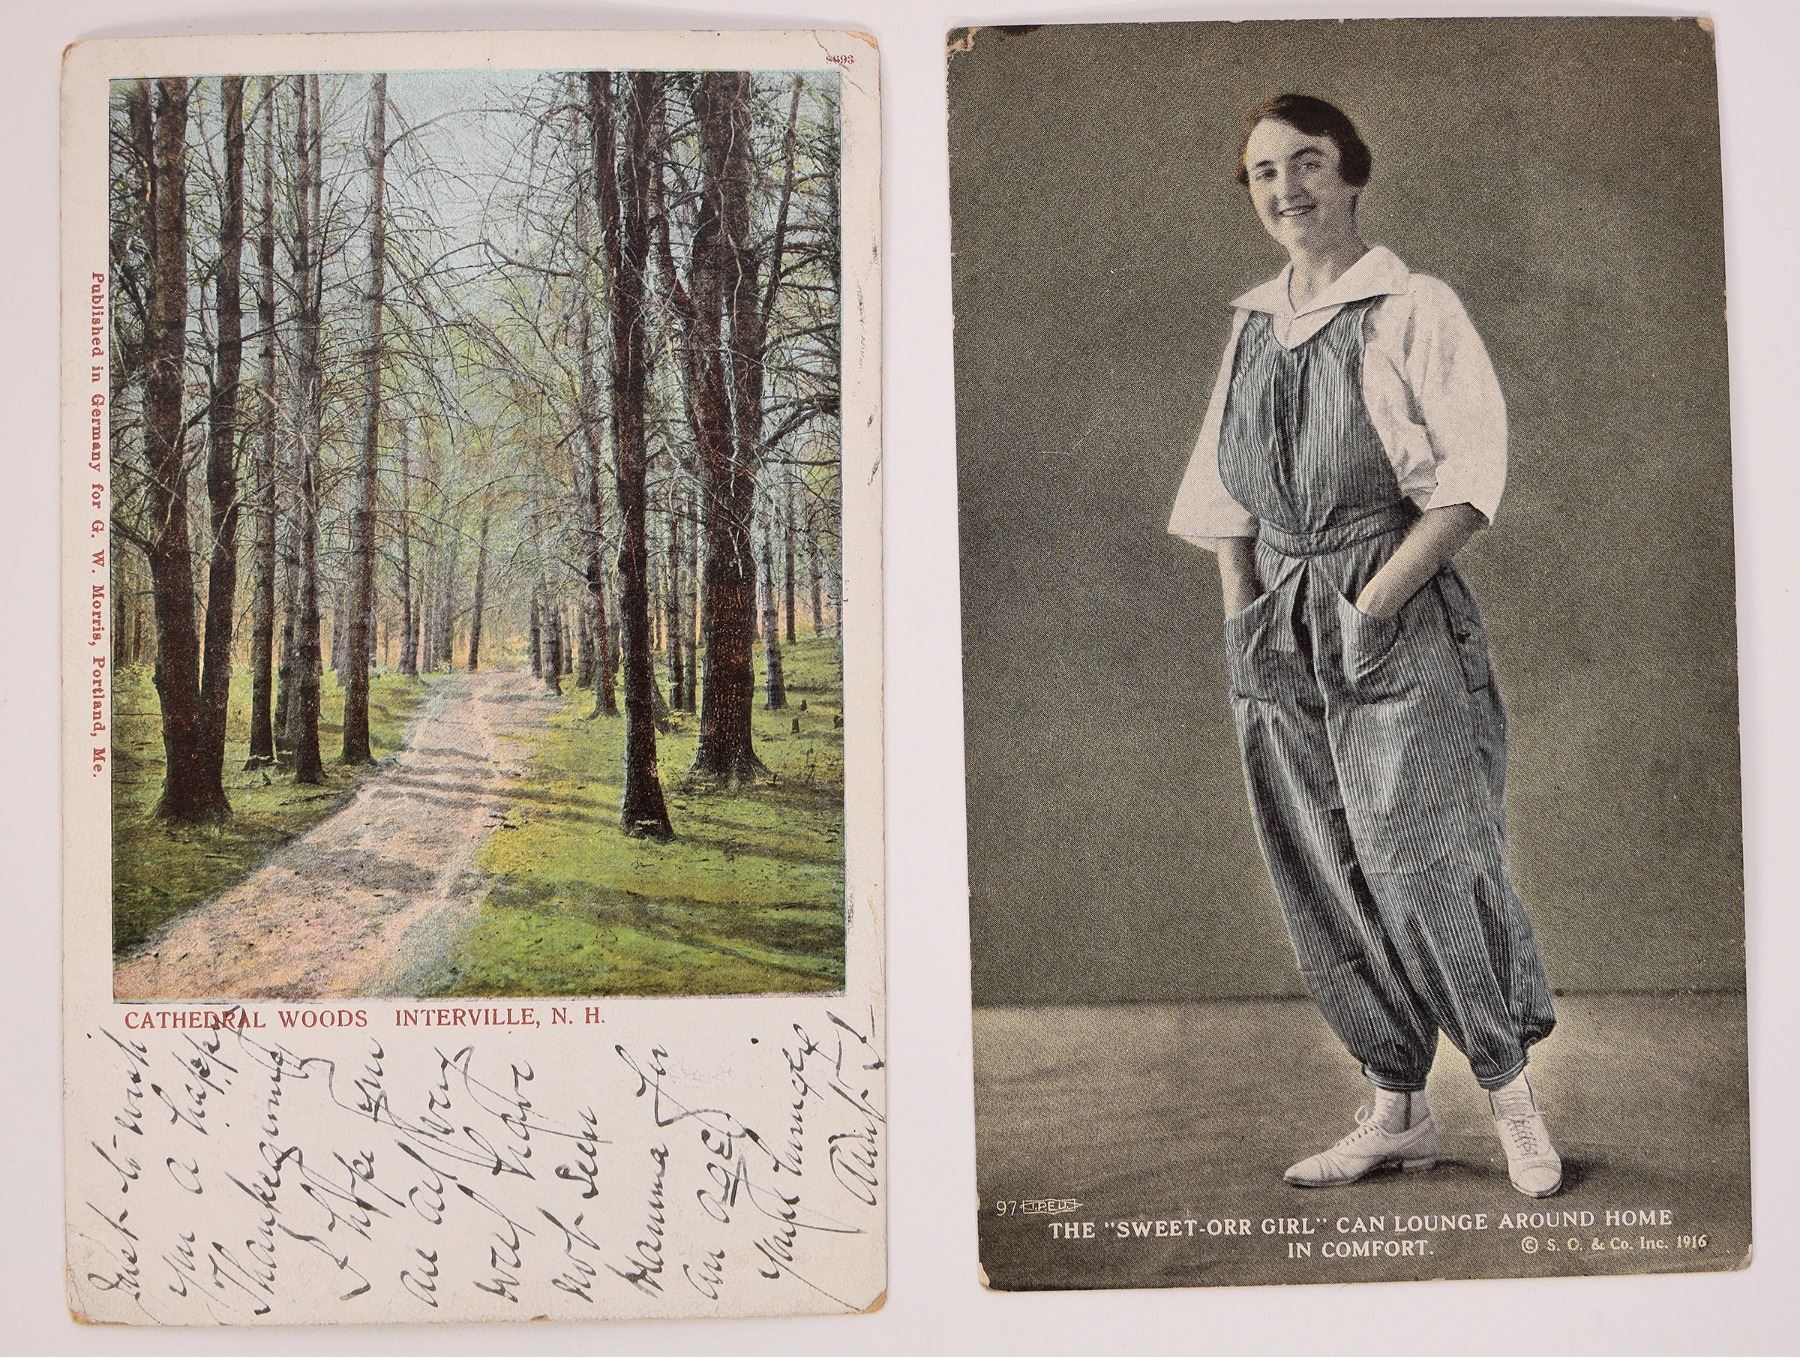 9693
Published in Germany for G. W. Morris, Portland, Me.
CATHEDRAL WOODS INTERVILLE, N. H.
Just to wish
you a happy
Thanksgiving
I hope you
are all very
well. have
not seen
Mamma for
an age
your
Aunt
97
THE "SWEET-ORR GIRL" CAN LOUNGE AROUND HOME
IN COMFORT.
© S. O. & Co. Inc. 1916